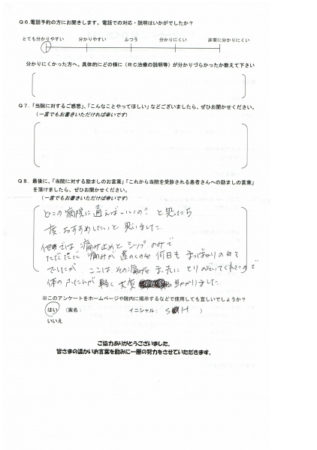 Q6.電話予約の方にお聞きします。電話での対応・説明はいかがでしたか？
とても分かりやすい 分かりやすい ふつう 分かりにくい 非常に分かりにくい
分かりにくかった方へ、具体的にどの様に（　　治療の説明等）が分かりづらかったか教えて下さい
Q7.「当院に対するご感想」、「こんなことやってほしい」などございましたら、ぜひお聞かせください。
（一言でもお書きいただければ幸いです）
Q8.最後に、「当院に対する励ましのお言葉」「これから当院を受診される患者さんへの励ましの言葉」
を頂けましたら、ぜひお聞かせください。
（一言でもお書きいただければ幸いです）
どこの病院に通えばいいの？と思ったら
一度おすすめしたいと思いました
他では痛み止めとシップのみで
ただただ痛みが 何日も
でしたが ここは 痛みを とりのぞいてくれるので
体の 軽く 大変 助かりました
※このアンケートをホームページや院内に掲示するなどで使用しても宜しいでしょうか？
はい （実名： イニシャル： S H ）
いいえ
ご協力ありがとうございました。
皆さまの温かいお言葉を励みに一層の努力をさせていただきます。